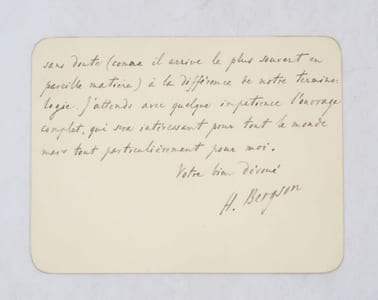 sans doute (comme il arrive le plus souvent en
pareille matière) à la différence de notre termino-
logie. J'attends avec quelque impatience l'ouvrage
complet, qui sera intéressant pour tout le monde
mais tout particulièrement pour moi.
Votre bien dévoué
H. Bergson